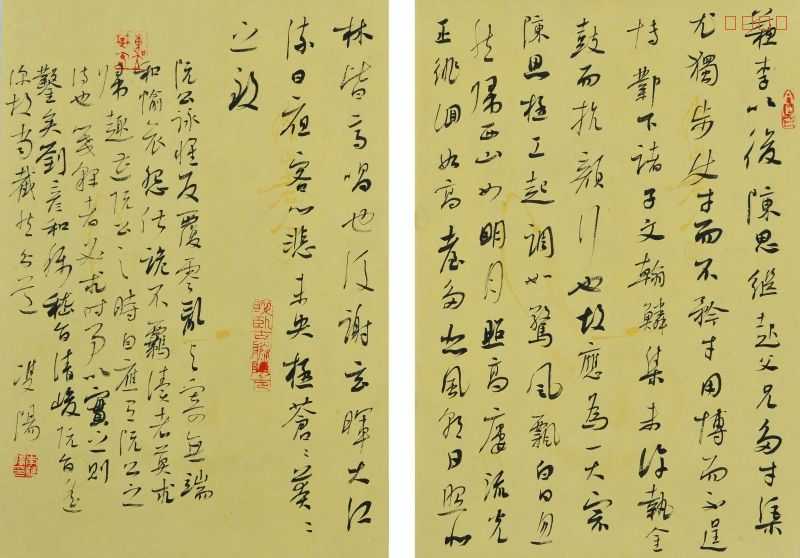 蘇李以後陳思繼起父兄多才渠
尤獨步仗才而不矜才用博而不逞
博鄴下諸子文翰鱗集未許執金
鼓而抗顏行也故應為一大宗
陳思極工起調如驚風飄白日忽
然歸西山如明月照高樓流光
正徘徊如高臺多悲風朝日照北
林皆高唱也後謝玄暉大江
流日夜客心悲未央極蒼〻莽〻
之致
阮公詠懷反覆零亂興寄無端
和愉哀怨俶詭不羈讀者莫求
歸趣遭阮公之時自應有阮公之
詩也箋釋者必求時事以實之則
鑿矣劉彥和稱嵇旨清峻阮旨遙
深故當截然分道